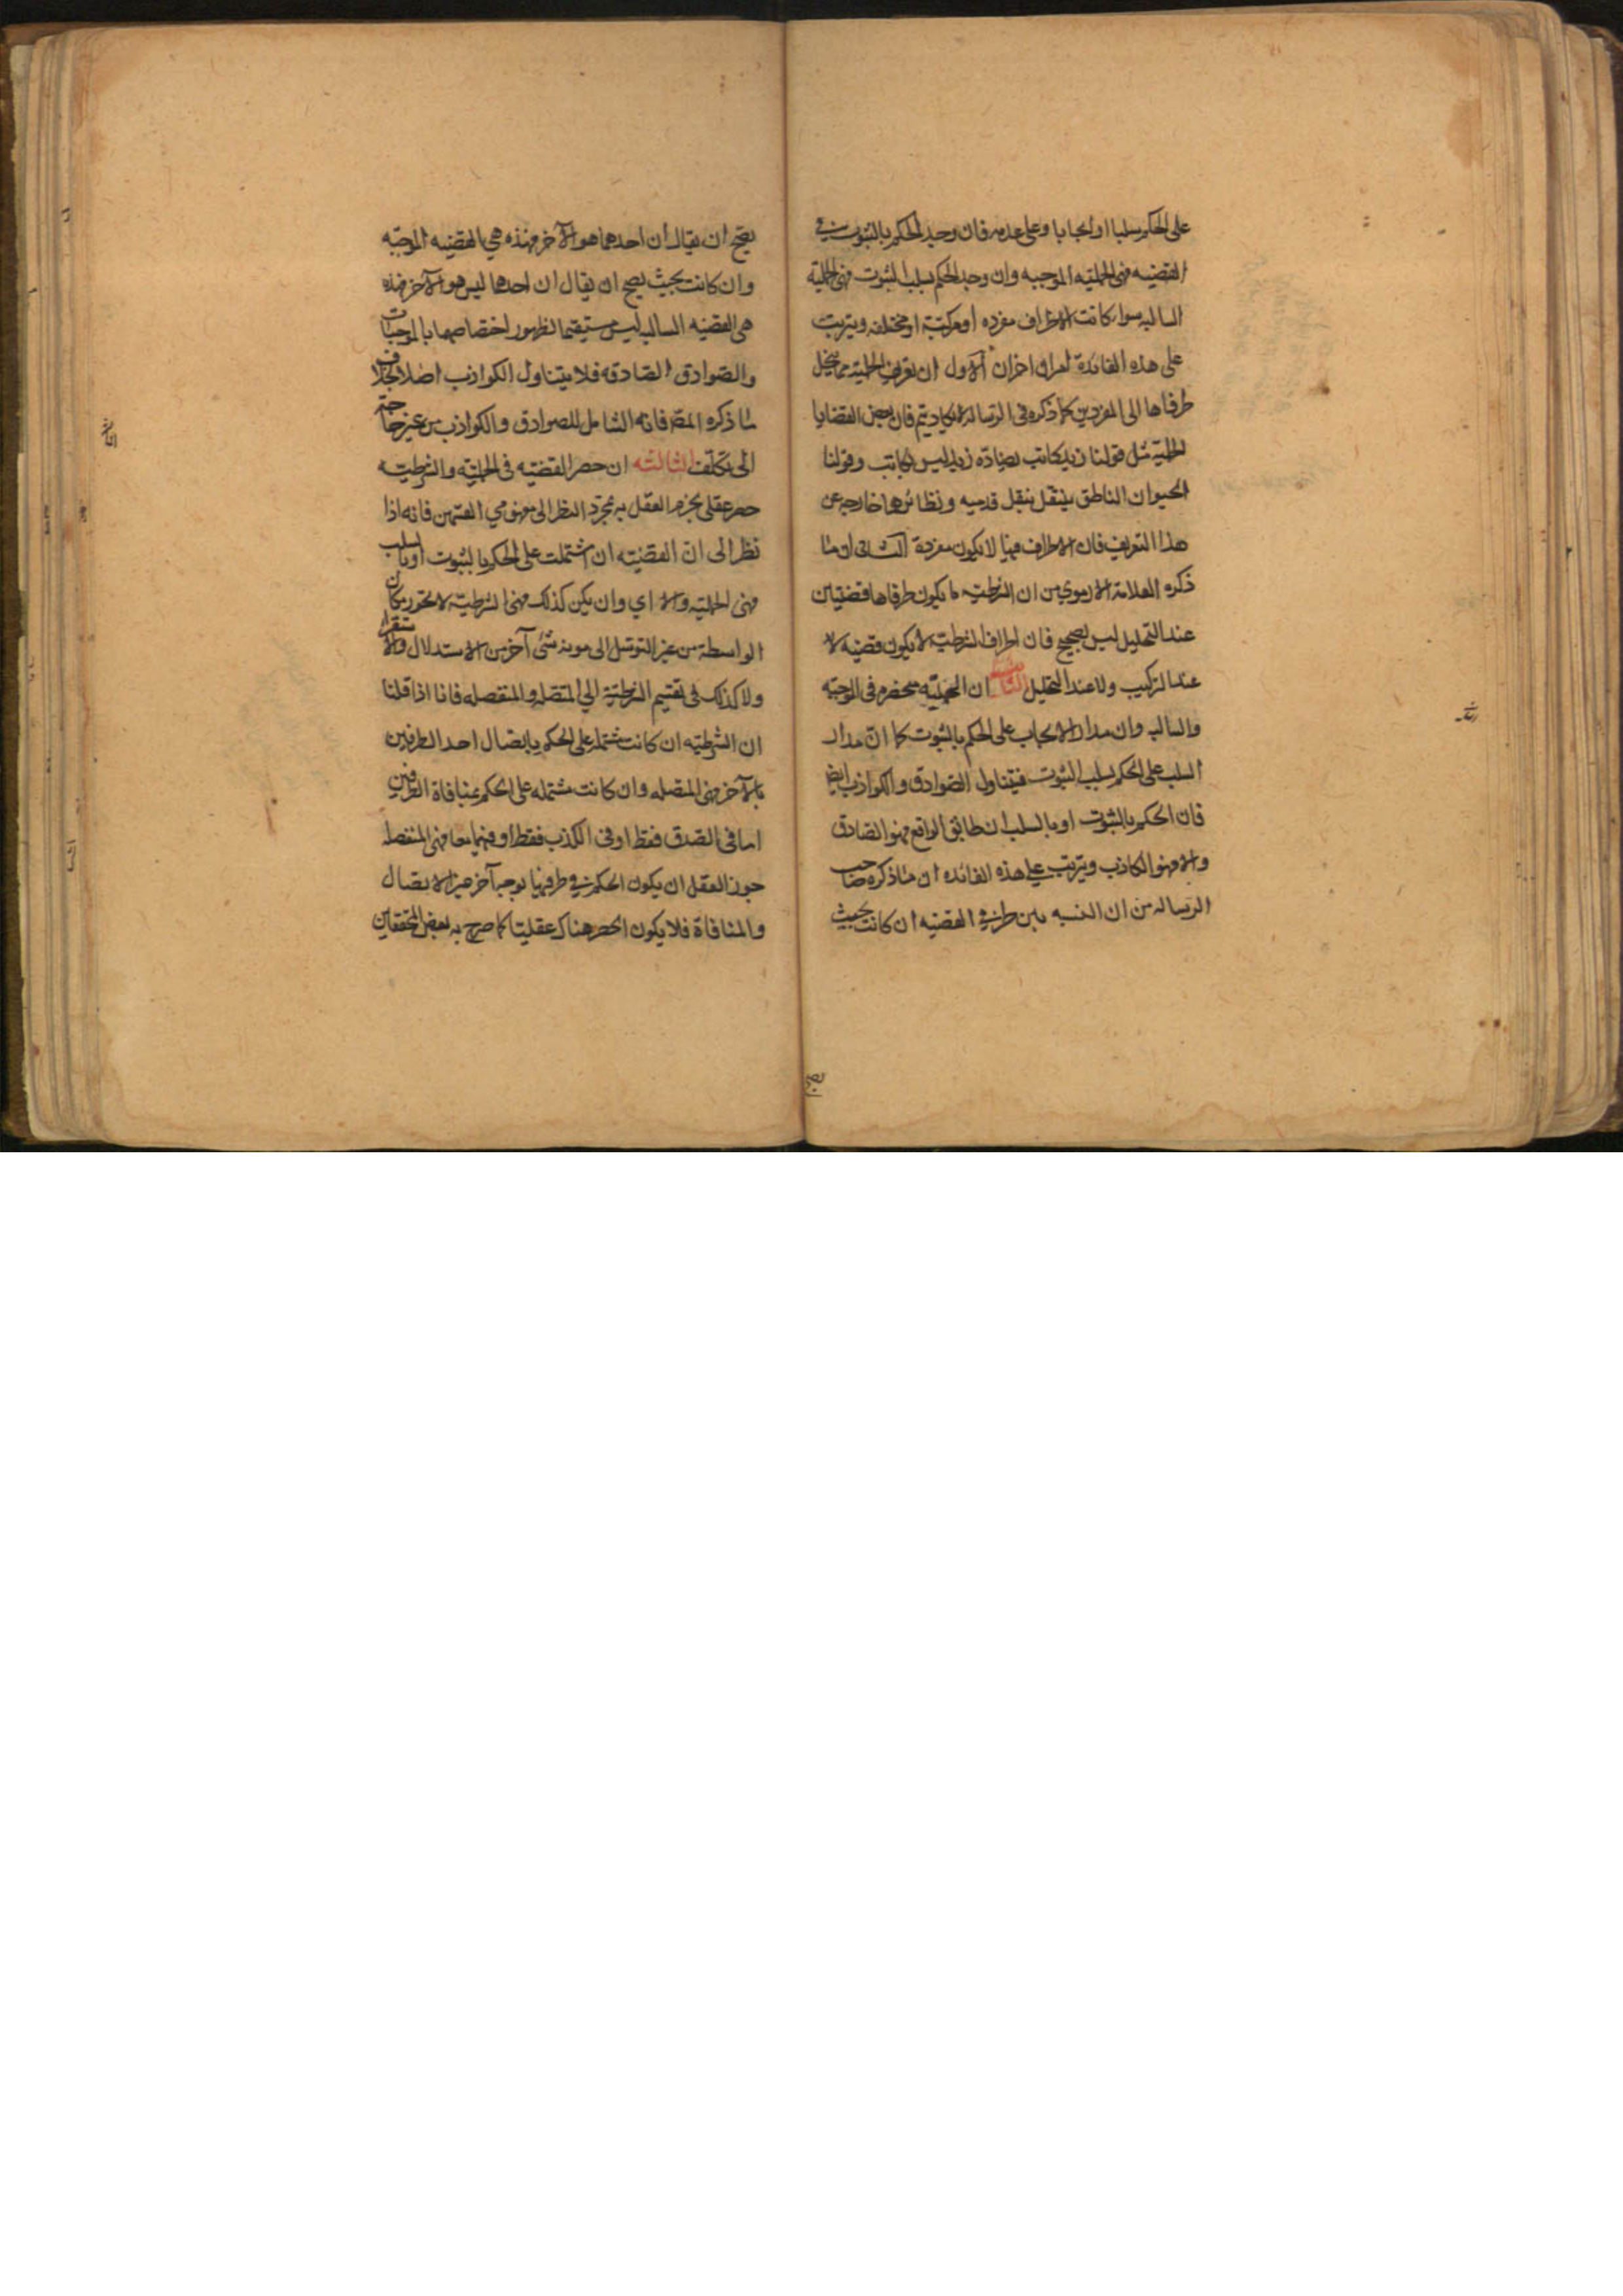 على الحكم سلبا او ايجابا وعلى عدمه فان وجد الحكم بالثبوت في
القضيه فهى الحمليه الموجبه وان وجد الحكم بسلب الثبوت فهى الحملية
السالبه سواء كانت الاطراف مفرده او مركبة او مختلفه ويترتب
على هذه الفائدة امران اخران الاول ان تعريف الحملية بما ينحل
طرفاها الى المفردين كما ذكره فى الرسالة لا يكاد يتم فان بعض القضايا
الحملية مثل قولنا زيد كاتب يضاده زيد ليس بكاتب وقولنا
الحيوان الناطق ينتقل بنقل قدميه ونظائرهما خارجه عن
هذا التعريف فان الاطراف فيها لا يكون مفردة الثانى ان ما
ذكره العلامة الارموي من ان الشرطيه ما يكون طرفاها قضيتين
عند التحليل ليس بصحيح فان اطراف الشرطية لا يكون قضيه لا
عند التركيب ولا عند التحليل الثانيه ان الحمليّه منحصره فى الموجبه
والسالبه وان مدار الايجاب على الحكم بالثبوت كما انّ مدار
السلب على الحكم بسلب الثبوت فيتناول الصوادق والكواذب ايضا
فان الحكم بالثبوت او بالسلب ان طابق الواقع فهو الصادق
والا فهو الكاذب ويترتب على هذه الفائده ان ما ذكره صاحب
الرساله من ان النسبه بين طرفي القضيه ان كانت بحيث
يصح
يصح ان يقال ان احدهما هو الآخر فهذه هي القضيه الموجبّه
وان كانت بحيث يصح ان يقال ان احدهما ليس هو الآخر فهذه
هى القضيه السالبه ليس مستقيما لظهور اختصاصها بالموجبات
والصوادق الصادقه فلا يتناول الكواذب اصلا بخلاف
ما ذكره المصّ فانه الشامل للصوادق والكواذب من غير حاجة
الى تكلّف الثالثه ان حصر القضيّه فى الحمليّه والشرطيّه
حصر عقلى يجزم العقل به بمجرّد النظر الى مفهومي القسمين فانه اذا
نظر الى انّ القضيّه ان اشتملت على الحكم بالثبوت او بالسلب
فهى الحمليّه والا اي وان يكن كذلك فهى الشرطيّة لا تحور مكان
الواسطة من غير التوسّل الى مونة شئ آخر من الاستدلال والاستقراء
ولا كذلك فى تقسيم الشرطيّة الي المتّصله والمنفصله فانا اذا قلنا
ان الشرطيّه ان كانت مشتمله على الحكم باتصال احد الطرفين
بالآخر فهى المتصله وان كانت مشتمله على الحكم بمنافاة الطرفين
اما فى الصدق فقط او فى الكذب فقط او فيهما معا فهى المنفصله
جوز العقل ان يكون الحكم في طرفيها بوجه آخر غير الاتصال
والمنافاة فلا يكون الحصر هناك عقليّا كما صرح به بعض المحققين